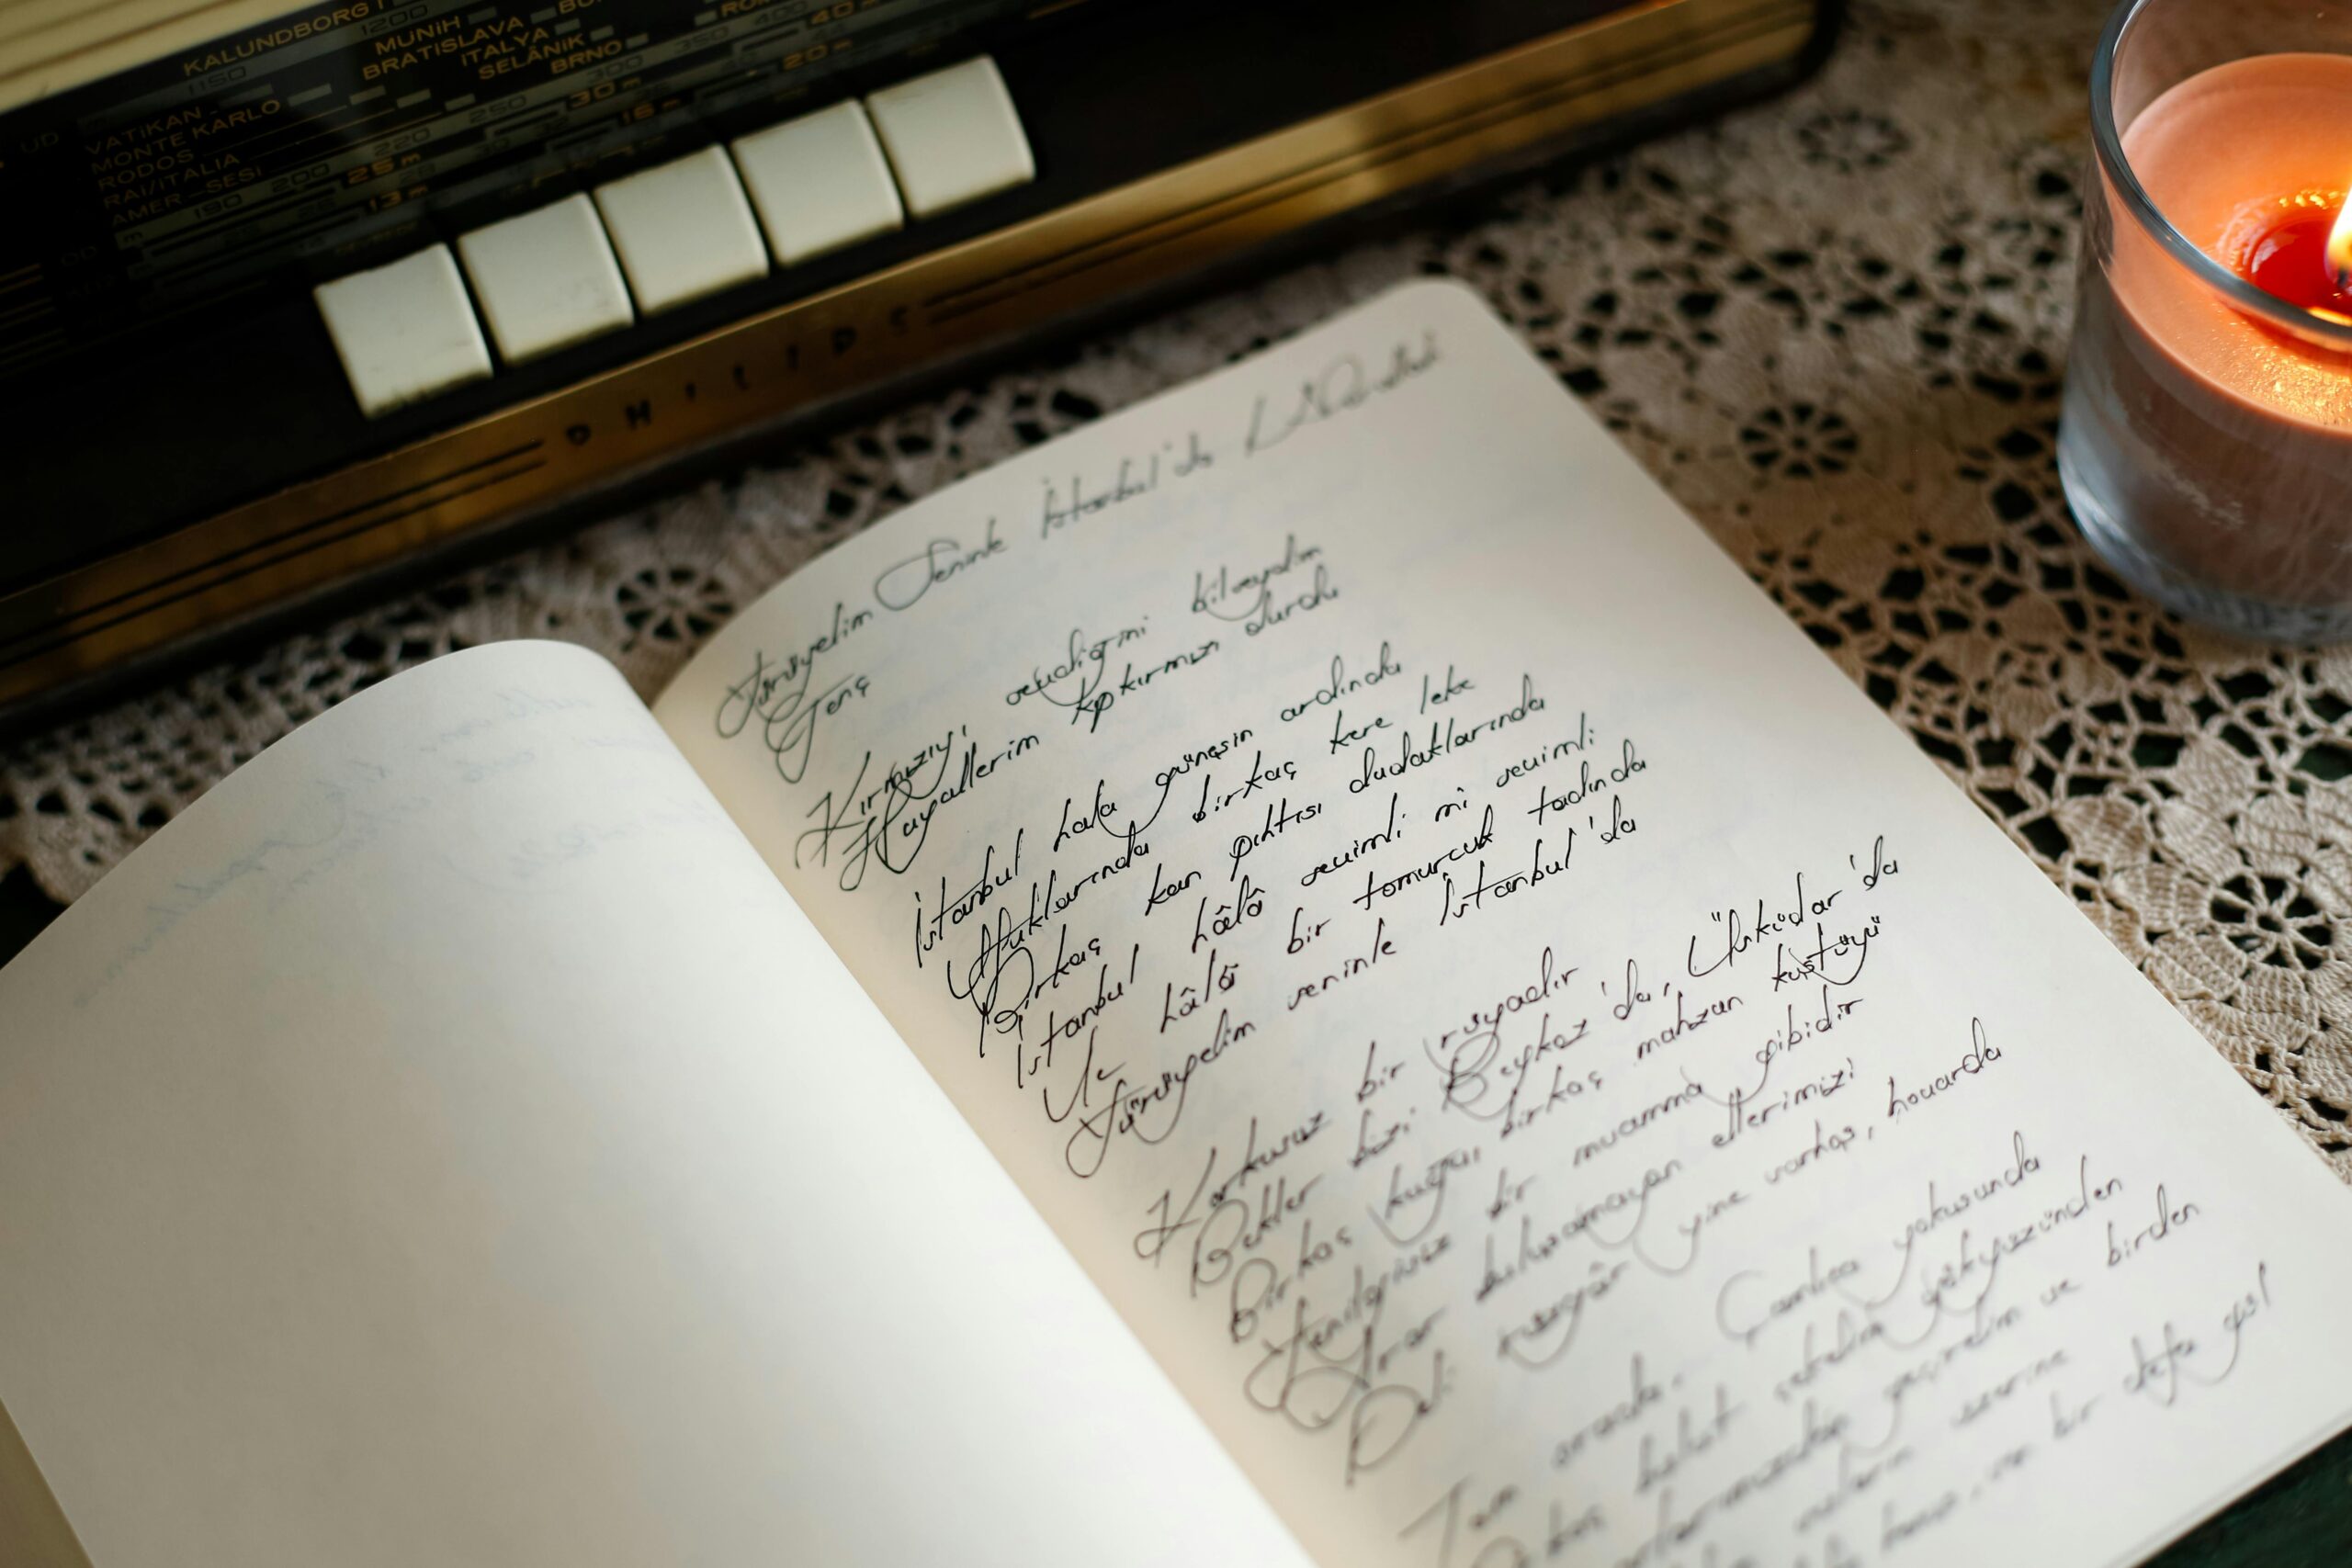 KALUNDBORG
1200
1150
MUNiH
BRATISLAVA
ITALYA
SELÂNIK
BRNO
400
350
300
250
220
200
190
40 m
30 m
25 m
20 m
16 m
13 m
VATiKAN
MONTE KARLO
RODOS
RAI/ITALIA
AMER - SESi
UD
PHILIPS
Yürüyelim Seninle İstanbul'da
Genç
Kırmızıyı, sevdiğimi bilseydim
Hayallerim kıpkırmızı olurdu
İstanbul hala güneşin ardında
Ufuklarında birkaç kere leke
Birkaç kan pıhtısı dudaklarında
İstanbul hâlâ sevimli mi sevimli
Ve hâlâ bir tomurcuk tadında
Yürüyelim seninle İstanbul'da
Korkusuz bir rüyadır
Bekler bizi Beykoz'da, Üsküdar'da
Birkaç kuğu birkaç mahzun kuştüyü
Yenilgisiz bir muamma gibidir
Arar bulunamayan ellerimizi
Deli rüzgâr yine sarhoş, hovarda
Tam orada, Çamlıca yokuşunda
bulut gökyüzünden
geçirelim ve birden
üzerine
bir defa gül